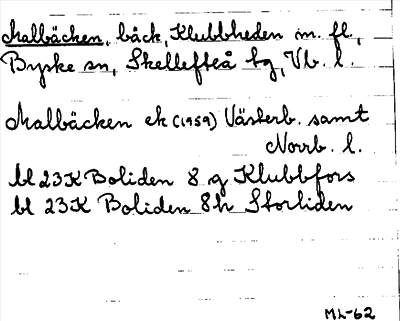 Malbäcken, bäck, Klubbheden m. fl.,
Byske sn, Skellefteå tg, Vb. l.
Malbäcken ek (1959) Västerb. samt
Norrb. l.
bl 23K Boliden 8 g Klubbfors
bl 23K Boliden 8h Storliden
ML-62